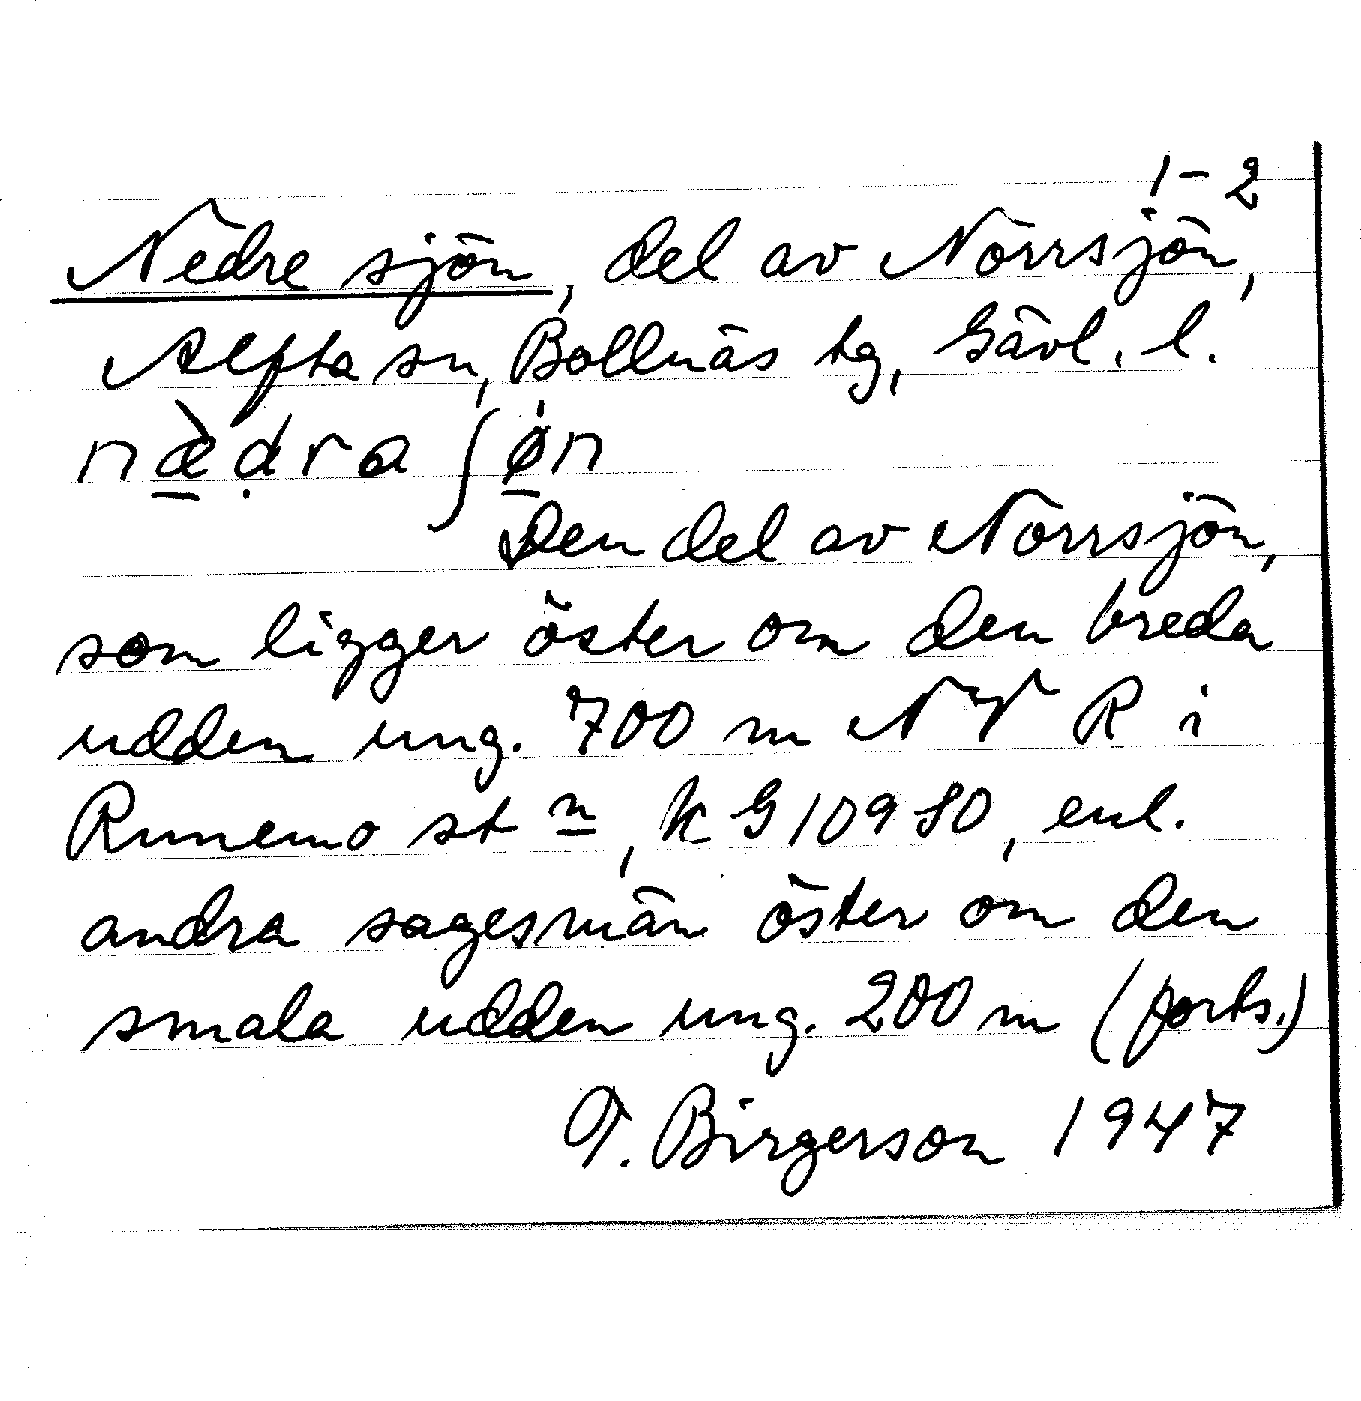 1-2
Nedre sjön, del av Norrsjön,
Alfta sn, Bollnäs tg, Gävl. l.
næ̀dra ʃǿn
Den del av Norrsjön,
som ligger öster om den breda
udden ung. 700 m NV R i
Runemo st n, kG10980, enl.
andra sagesmän öster om den
smala udden ung. 200 m (forts.)
T. Birgerson 1947